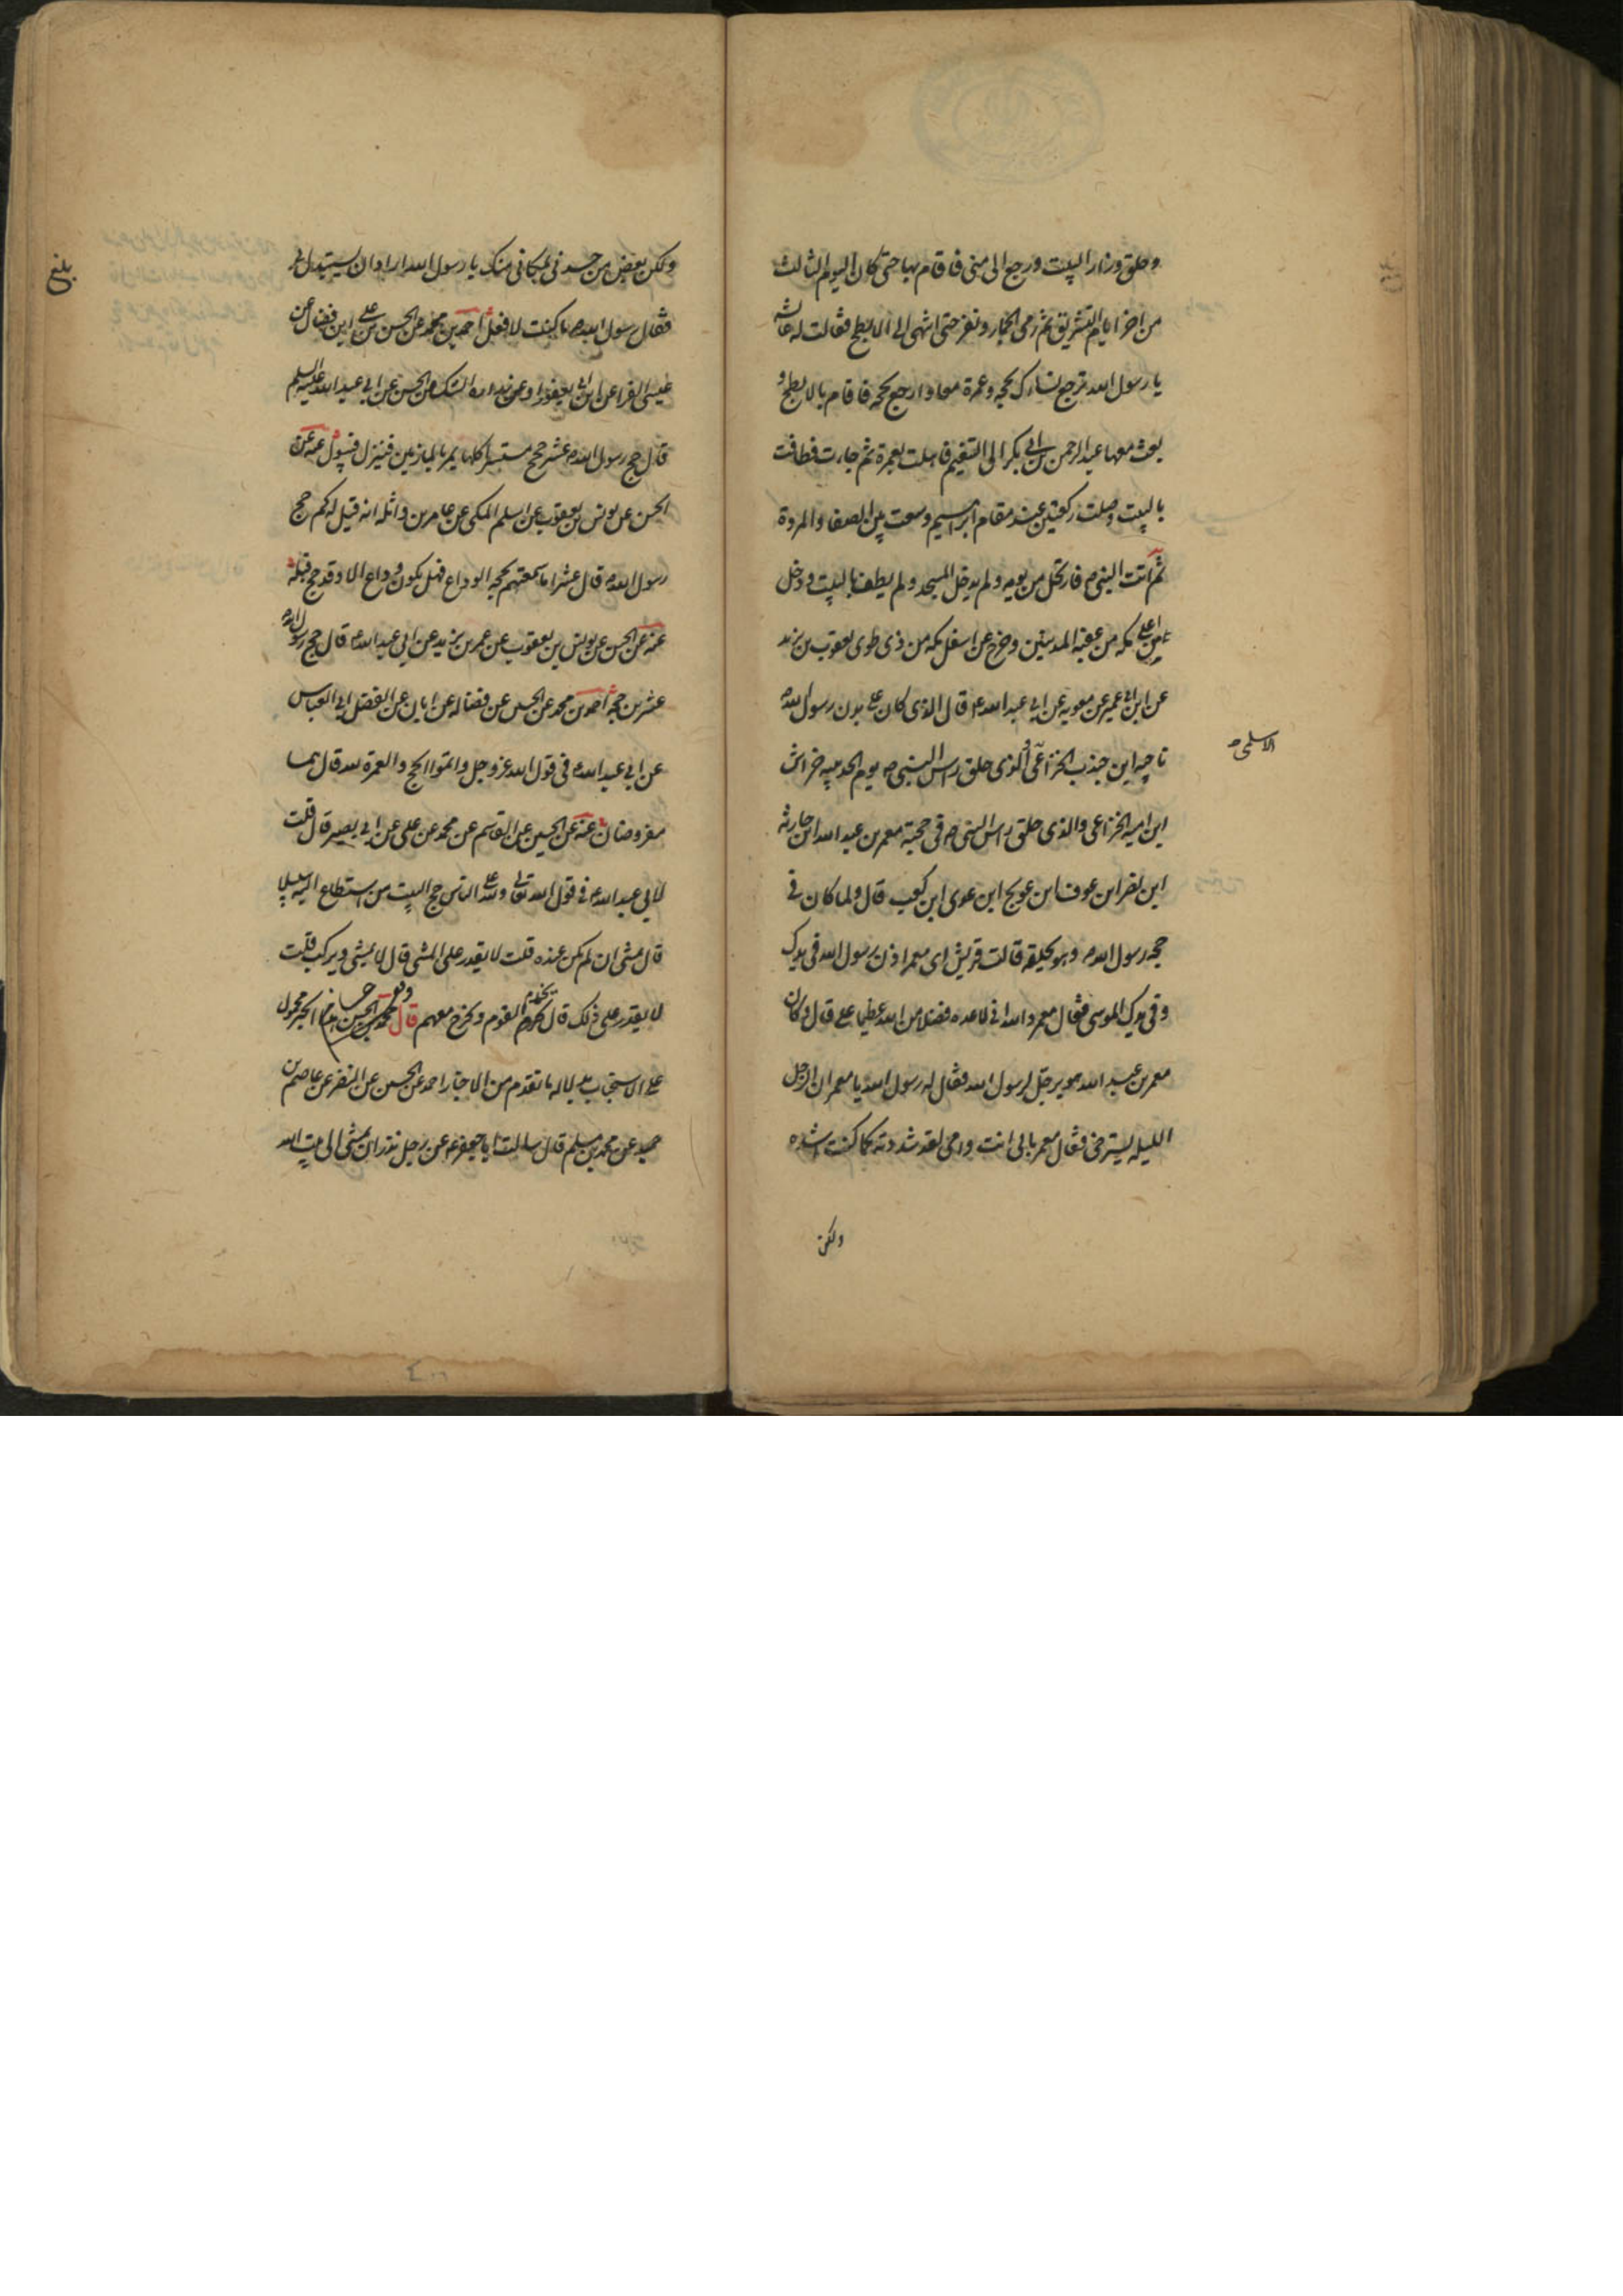 وحلق وزار البيت ورجع الى منى فاقام بها حتى كان اليوم الثالث
من اخر ايام التشريق ثم رمى الجمار ونفر حتى انتهى الى الابطح فقالت له عايشه
يا رسول الله ترجع نساءك بحجه وعمرة معا وارجع بحجه فاقام بالابطح و
بعث معها عبد الرحمن بن ابي بكر الى التنعيم فاهلت بعمرة ثم جاءت فطافت
بالبيت وصلت ركعتين عند مقام ابراهيم وسعت بين الصفا والمروة
ثم اتت النبي ص فارتحل من يومه ولم يدخل المسجد ولم يطف بالبيت ودخل
من اعلى مكه من عقبة المدنيين وخرج من اسفل مكه من ذى طوى يعقوب بن يزيد
عن ابن ابي عمير عن معويه عن ابي عبد الله ع قال الذى كان على بدن رسول الله ص
ناجيه ابن جندب الخزاعى والذى حلق راس النبي ص يوم الحديبيه خراش
الاسلمى ص
ابن اميه الخزاعى والذى حلق راس النبي ص فى حجته معمر بن عبد الله ابن حارثه
ابن نصر ابن عوف ابن عويج ابن عدى ابن كعب قال ولما كان فى
حجه رسول الله ص وهو يحلقه قالت قريش اى معمر اذن رسول الله فى يدك
وفى يدك الموسى فقال معمر والله انى لاعده فضلا من الله عظيما على قال وكان
معمر بن عبد الله هو يرحل لرسول الله فقال له رسول الله يا معمر ان الرحل
الليله ليسترخى فقال معمر بابى انت وامى لقد شددته كما كنت اشده
ولكن
بلغ
ولكن بعض من حسدنى مكانى منك يا رسول الله اراد ان يستبدل بى
فقال رسول الله ص ما كنت لافعل احمد بن محمد عن الحسن بن على ابن فضال عن
عيسى الفرا عن ابن ابى يعفور او عن زراره الشك من الحسن عن ابى عبد الله عليه السلم
قال حج رسول الله ص عشر حجج مستسرا كلها يمر بالمازمين فينزل فيبول عنه عن
الحسن عن يونس بن يعقوب عن اسلم المكى عن عامر بن واثله انه قيل له كم حج
رسول الله ص قال عشرا ما سمعتهم بحجه الوداع فهل يكون وداع الا وقد حج قبله
عنه عن الحسن عن يونس بن يعقوب عن عمر بن يزيد عن ابى عبد الله ع قال حج رسول الله ص
عشرين حجه احمد بن محمد عن الحسين عن فضاله عن ابان عن الفضل ابى العباس
عن ابى عبد الله ع فى قول الله عز وجل واتموا الحج والعمرة لله قال هما
مفروضان عنه عن الحسين عن القاسم عن محمد عن على عن ابى بصير قال قلت
لابى عبد الله ع فى قول الله تعالى ولله على الناس حج البيت من استطاع اليه سبيلا
قال يمشى ان لم يكن عنده قلت لا يقدر على المشى قال يمشى ويركب قلت
لا يقدر على ذلك قال يخدم القوم ويخرج معهم قال محمد بن الحسن هذا الخبر محمول
على الاستحباب بدلاله ما تقدم من الاخبار احمد عن الحسين عن النضر عن عاصم بن
حميد عن محمد بن مسلم قال سالت ابا جعفر ع عن رجل نذر ان يمشى الى بيت الله